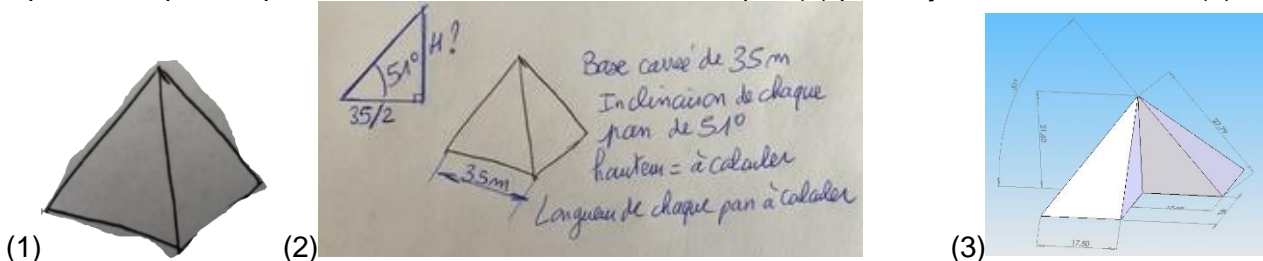 H?
51°
35/2
35m
Base carrée de 35m
Inclinaison de chaque
pan de 51°
hauteur = à calculer
Longueur de chaque pan à Calculer
21,60
17,50
(1)
(2)
(3)